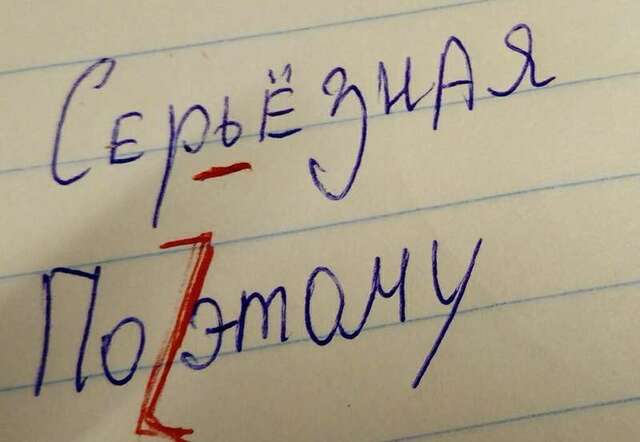 Серьёзная
По[этому